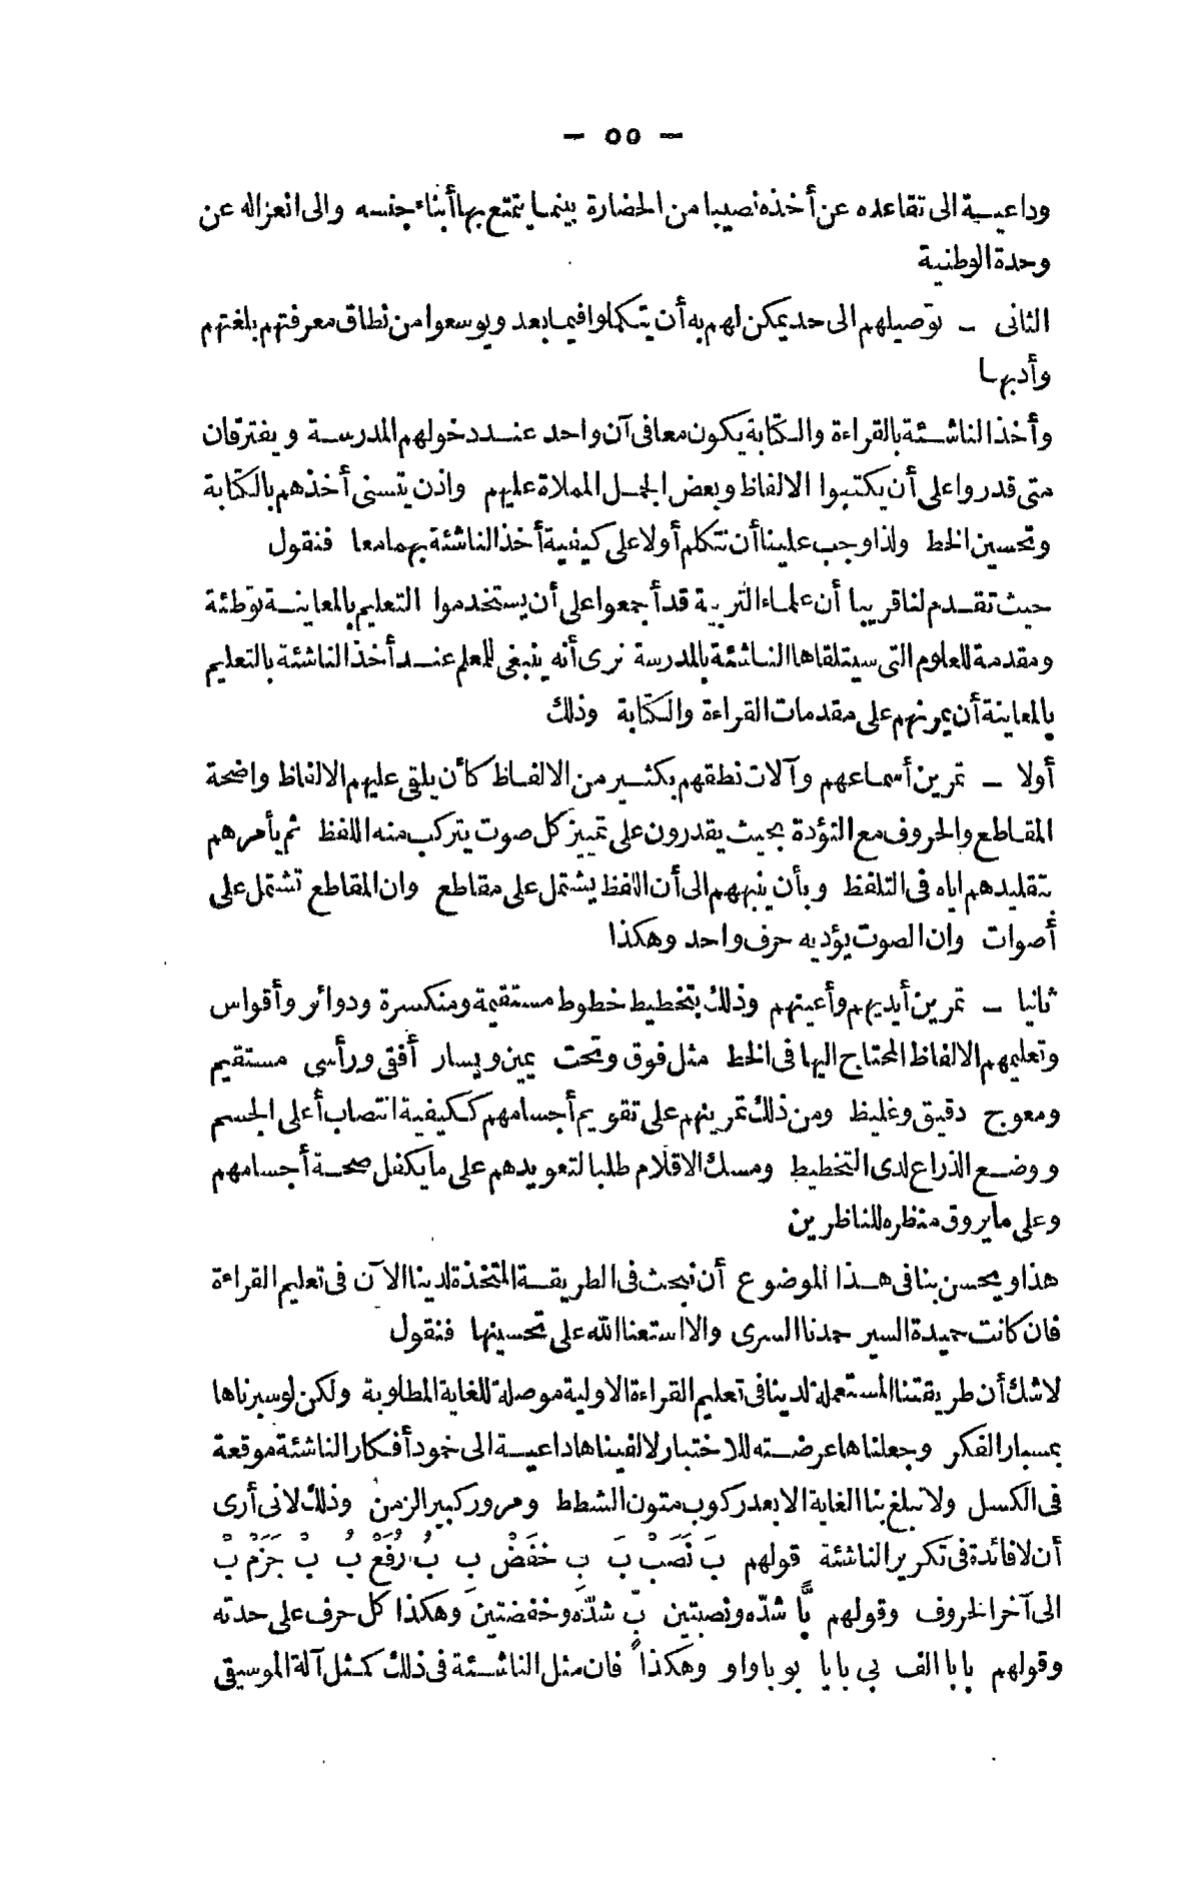 — ٥٥ —
وداعية الى تقاعده عن أخذه نصيبا من الحضارة بينما يتمتع بها أبناء جنسه والى انعزاله عن
وحدة الوطنية
الثانى — توصيلهم الى حد يمكن لهم به أن يتكملوا فيما بعد ويوسعوا من نطاق معرفتهم بلغتهم
وأدبها
وأخذ الناشئة بالقراءة والكتابة يكون معا فى آن واحد عند دخولهم المدرسة ويفترقان
متى قدروا على أن يكتبوا الالفاظ وبعض الجمل المملاة عليهم واذن يتسنى أخذهم بالكتابة
وتحسين الخط ولذا وجب علينا أن نتكلم أولا على كيفية أخذ الناشئة بهما معا فنقول
حيث تقدم لنا قريبا أن علماء التربية قد أجمعوا على أن يستخدموا التعليم بالمعاينة توطئة
ومقدمة للعلوم التى سيتلقاها الناشئة بالمدرسة نرى أنه ينبغى للمعلم عند أخذ الناشئة بالتعليم
بالمعاينة أن يمرنهم على مقدمات القراءة والكتابة وذلك
أولا — تمرين أسماعهم وآلات نطقهم بكثير من الالفاظ كأن يلقى عليهم الالفاظ واضحة
المقاطع والحروف مع التؤدة بحيث يقدرون على تمييز كل صوت يتركب منه اللفظ ثم يأمرهم
بتقليدهم اياه فى التلفظ وبأن ينبههم الى أن اللفظ يشتمل على مقاطع وان المقاطع تشتمل على
أصوات وان الصوت يؤديه حرف واحد وهكذا
ثانيا — تمرين أيديهم وأعينهم وذلك بتخطيط خطوط مستقيمة ومنكسرة ودوائر وأقواس
وتعليمهم الالفاظ المحتاج اليها فى الخط مثل فوق وتحت يمين ويسار أفقى ورأسى مستقيم
ومعوج دقيق وغليظ ومن ذلك تمرينهم على تقويم أجسامهم ككيفية انتصاب أعلى الجسم
ووضع الذراع لدى التخطيط ومسك الاقلام طلبا لتعويدهم على ما يكفل صحة أجسامهم
وعلى ما يروق منظره للناظرين
هذا ويحسن بنا فى هذا الموضوع أن نبحث فى الطريقة المتخذة لدينا الآن فى تعليم القراءة
فان كانت حميدة السير حمدنا السرى والا استعنا الله على تحسينها فنقول
لا شك أن طريقتنا المستعملة لدينا فى تعليم القراءة الاولية موصلة للغاية المطلوبة ولكن لو سبرناها
بمسبار الفكر وجعلناها عرضته للاختبار لالفيناها داعية الى خمود أفكار الناشئة موقعة
فى الكسل ولا تبلغ بنا الغاية الا بعد ركوب متون الشطط ومرور كبير الزمن وذلك لانى أرى
أن لا فائدة فى تكرير الناشئة قولهم بَ نَصَبْ بَ بِ خَفَضْ بِ بُ رُفَعْ بُ بْ جَزَمْ بْ
الى آخر الحروف وقولهم بًّا شدّه ونصبتين بٍّ شدّه وخفضتين وهكذا كل حرف على حدته
وقولهم با با الف بي با يا بو با واو وهكذا فان مثل الناشئة فى ذلك كمثل آلة الموسيقى